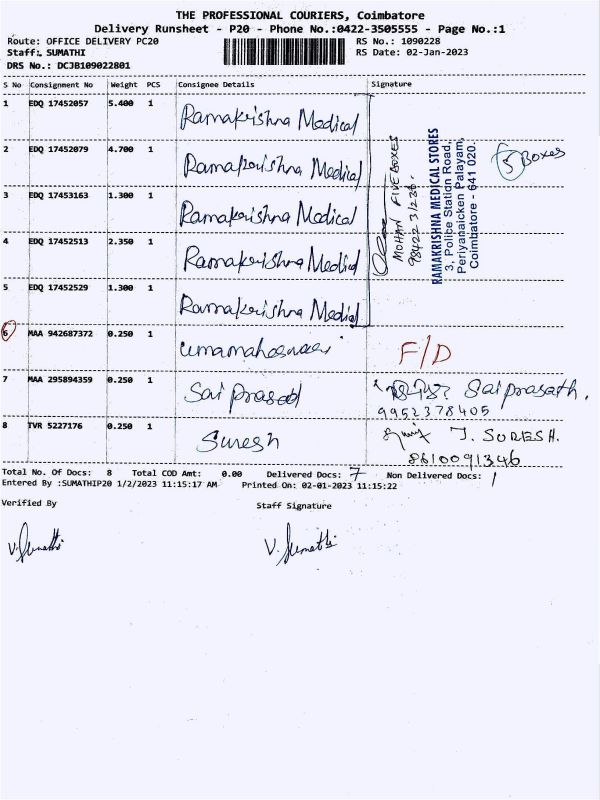 THE PROFESSIONAL COURIERS, Coimbatore
Delivery Runsheet - P20 - Phone No.:0422-3505555 - Page No.:1
Route: OFFICE DELIVERY PC20 RS No.: 1090228
Staff: SUMATHI RS Date: 02-Jan-2023
DRS No.: DCJB109022801
S No Consignment No Weight PCS Consignee Details Signature
1 EDQ 17452057 5.400 1 Ramakrishna Medical
2 EDQ 17452079 4.700 1 Ramakrishna Medical
3 EDQ 17453163 1.300 1 Ramakrishna Medical
4 EDQ 17452513 2.350 1 Ramakrishna Medical
5 EDQ 17452529 1.300 1 Ramakrishna Medical
MOHAN FIVE BOXES
98422 31236.
RAMAKRISHNA MEDICAL STORES
3, Police Station Road,
Periyanaicken Palayam,
Coimbatore - 641 020.
5 Boxes
6 MAA 942687372 0.250 1 umamaheswari F/D
7 MAA 295894359 0.250 1 Sai prasad Saiprasath.
9952378405
8 TVR 5227176 0.250 1 Suresh J. SURESH.
8610091346
Total No. Of Docs: 8 Total COD Amt: 0.00 Delivered Docs: 7 Non Delivered Docs: 1
Entered By :SUMATHIP20 1/2/2023 11:15:17 AM Printed On: 02-01-2023 11:15:22
Verified By Staff Signature
V. Sumathi V. Sumathi